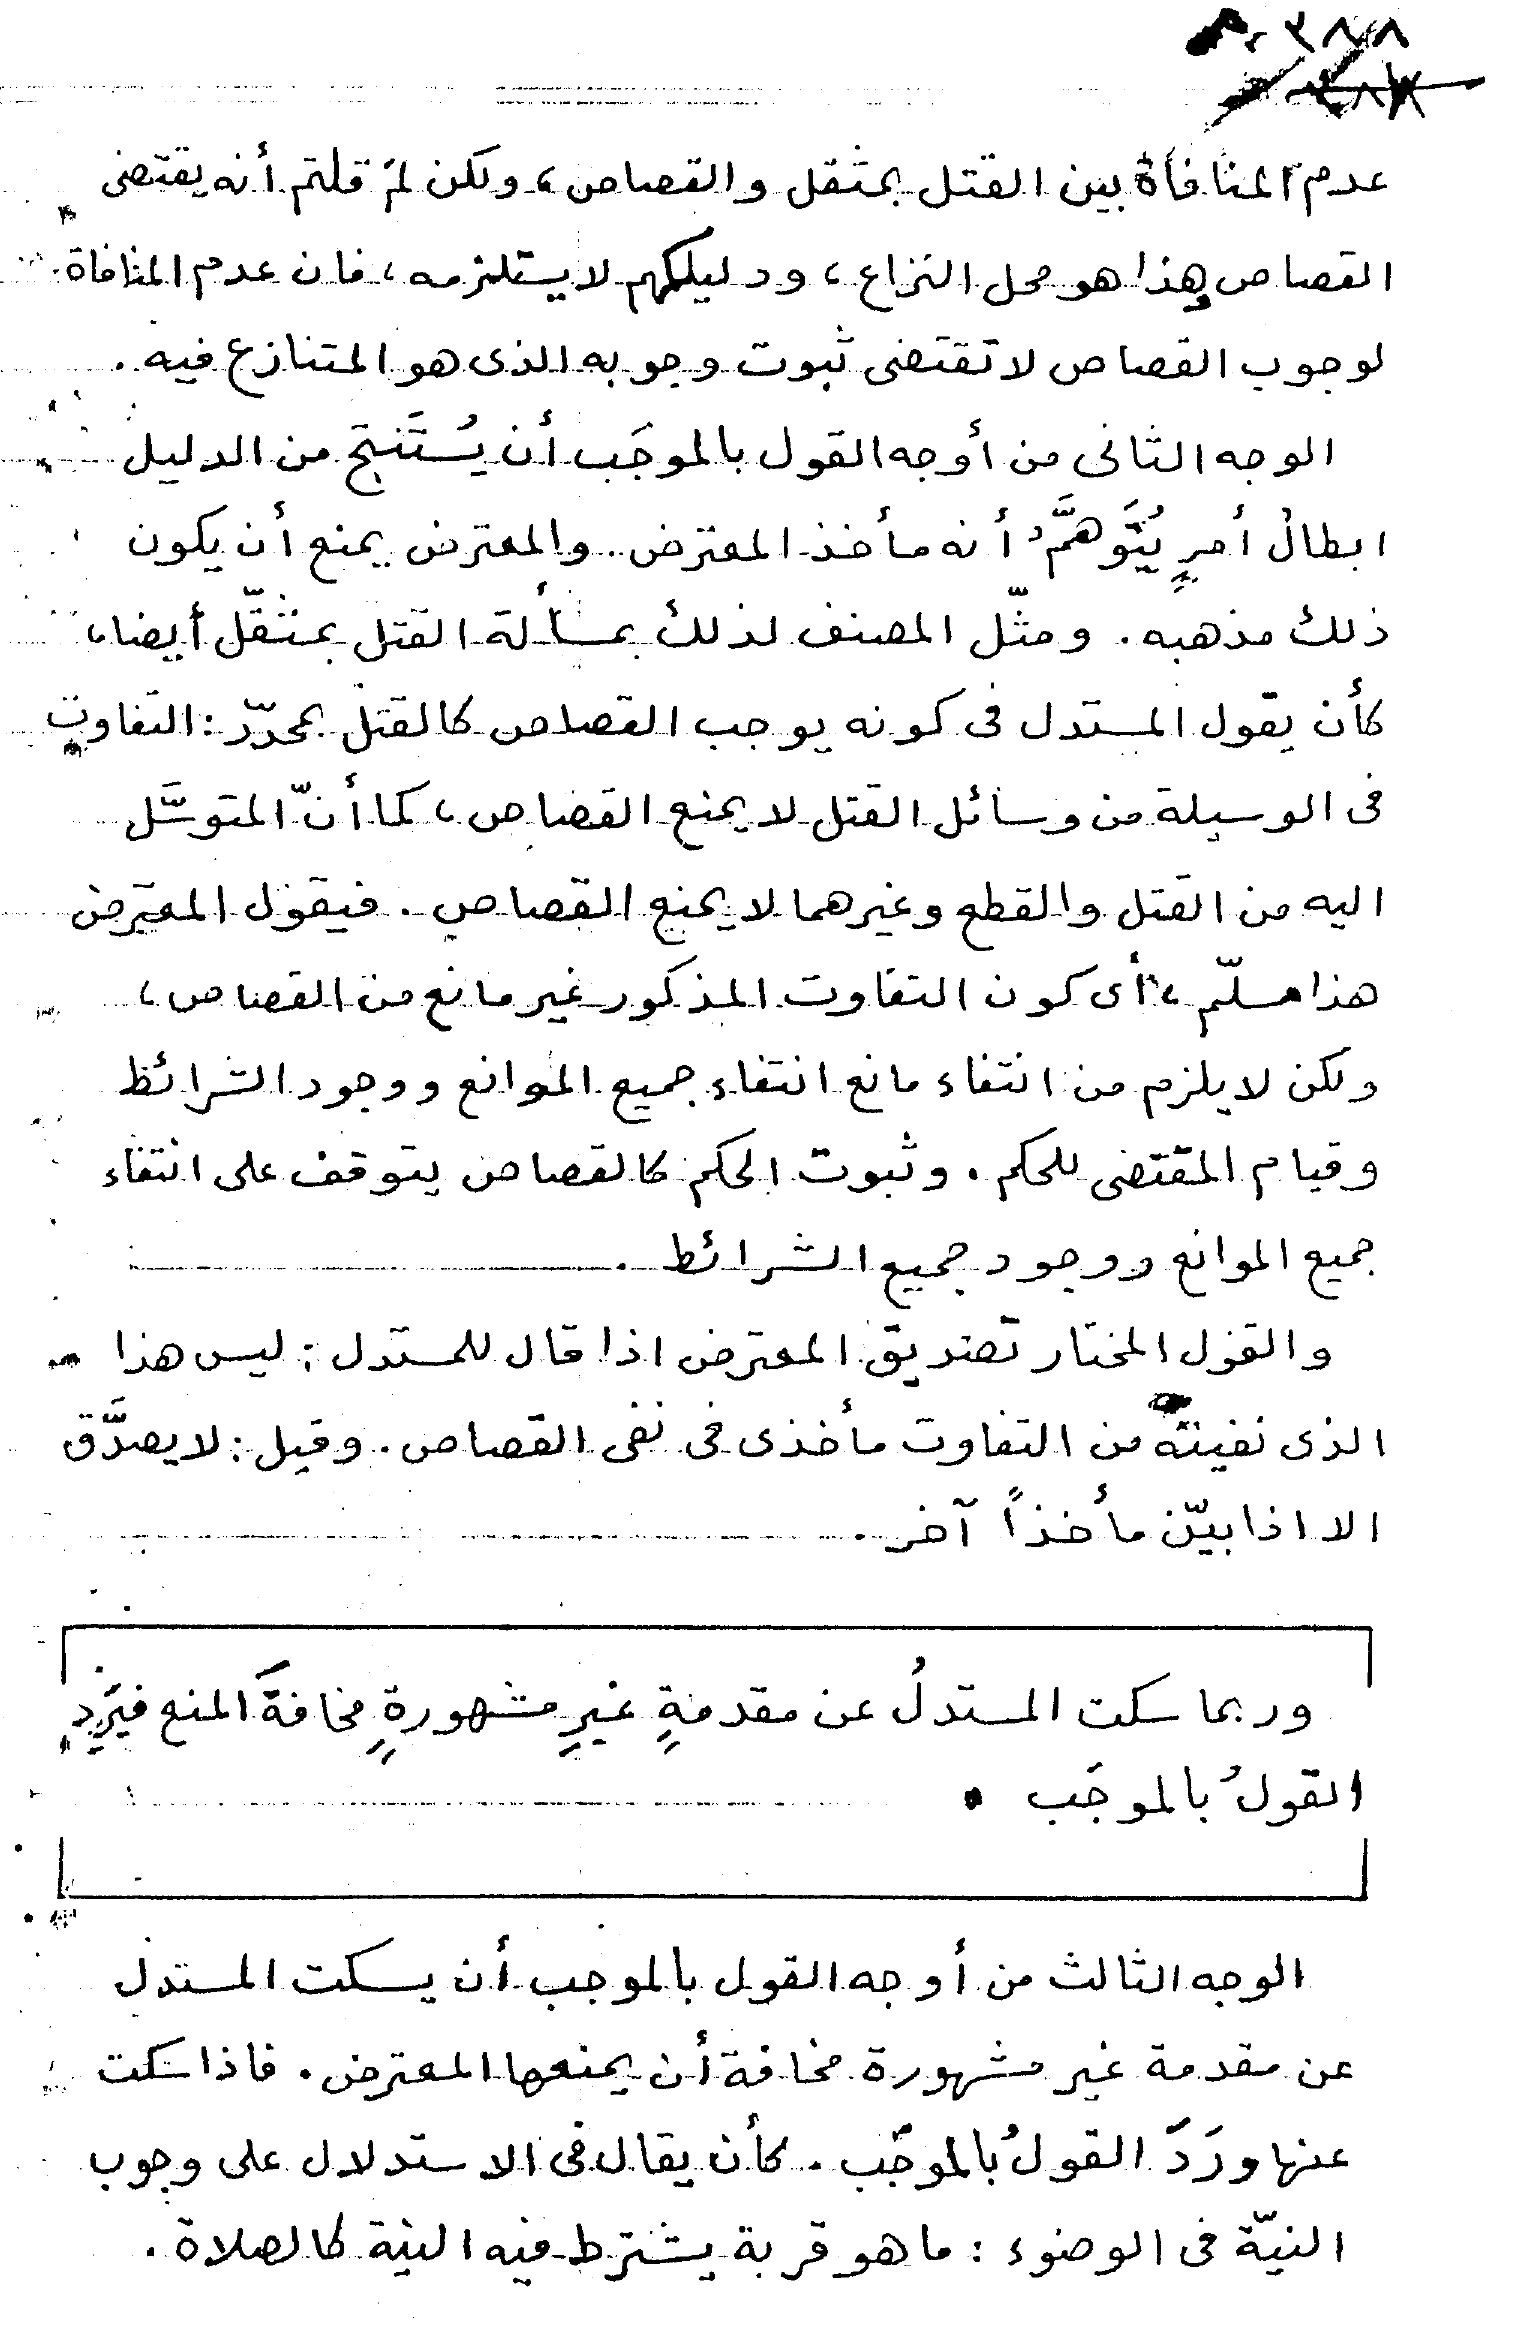 ٣٨٨
عدم المنافاة بين القتل بمثقل والقصاص، ولكن لمَ قلتم أنه يقتضى
القصاص وهذا هو محل النزاع، ودليلكم لا يستلزمه، فان عدم المنافاة
لوجوب القصاص لا تقتضى ثبوت وجوبه الذى هو المتنازع فيه.
الوجه الثانى من أوجه القول بالموجَب أن يُستَنتج من الدليل
ابطالُ أمرٍ يُتَوهَّمُ أنه مأخذ المعترض. والمعترض يمنع أن يكون
ذلك مذهبه. ومثّل المصنف لذلك بمسألة القتل بمثقّل أيضا،
كأن يقول المستدل فى كونه يوجب القصاص كالقتل بمحدّد: التفاوت
فى الوسيلة من وسائل القتل لا يمنع القصاص، كما أنّ المتوسَّل
اليه من القتل والقطع وغيرهما لا يمنع القصاص. فيقول المعترض
هذا مسلّم، أى كون التفاوت المذكور غير مانع من القصاص،
ولكن لا يلزم من انتفاء مانع انتفاء جميع الموانع ووجود الشرائط
وقيام المقتضى للحكم. وثبوت الحكم كالقصاص يتوقف على انتفاء
جميع الموانع ووجود جميع الشرائط.
والقول المختار تصديق المعترض اذا قال للمستدل: ليس هذا
الذى نفيته من التفاوت مأخذى فى نفى القصاص. وقيل: لا يصدَّق
الا اذا بيّن مأخذاً آخر.
وربما سكت المستدلُ عن مقدمةٍ غيرِ مشهورةٍ مخافةَ المنع فيَرِد
القولُ بالموجَب.
الوجه الثالث من أوجه القول بالموجب أن يسكت المستدل
عن مقدمة غير مشهورة مخافة أن يمنعها المعترض. فاذا سكت
عنها ورَدَ القولُ بالموجَب. كأن يقال فى الاستدلال على وجوب
النيّة فى الوضوء: ما هو قربة يشترط فيه النية كالصلاة.